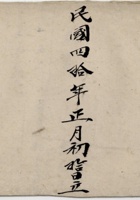 民國四拾年正月初拾日立